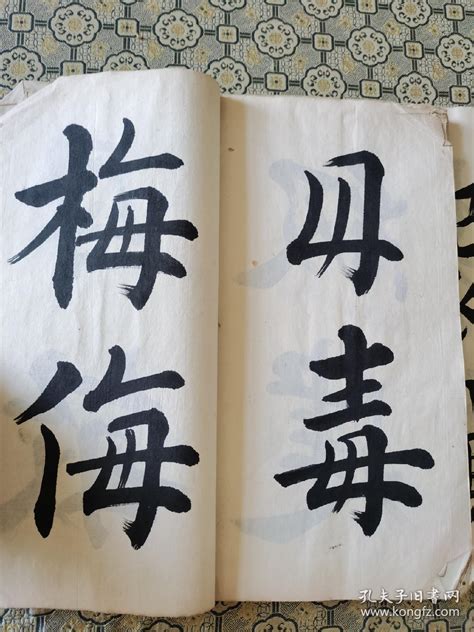 毋毒
梅侮
孔夫子旧书网
www.kongfz.com